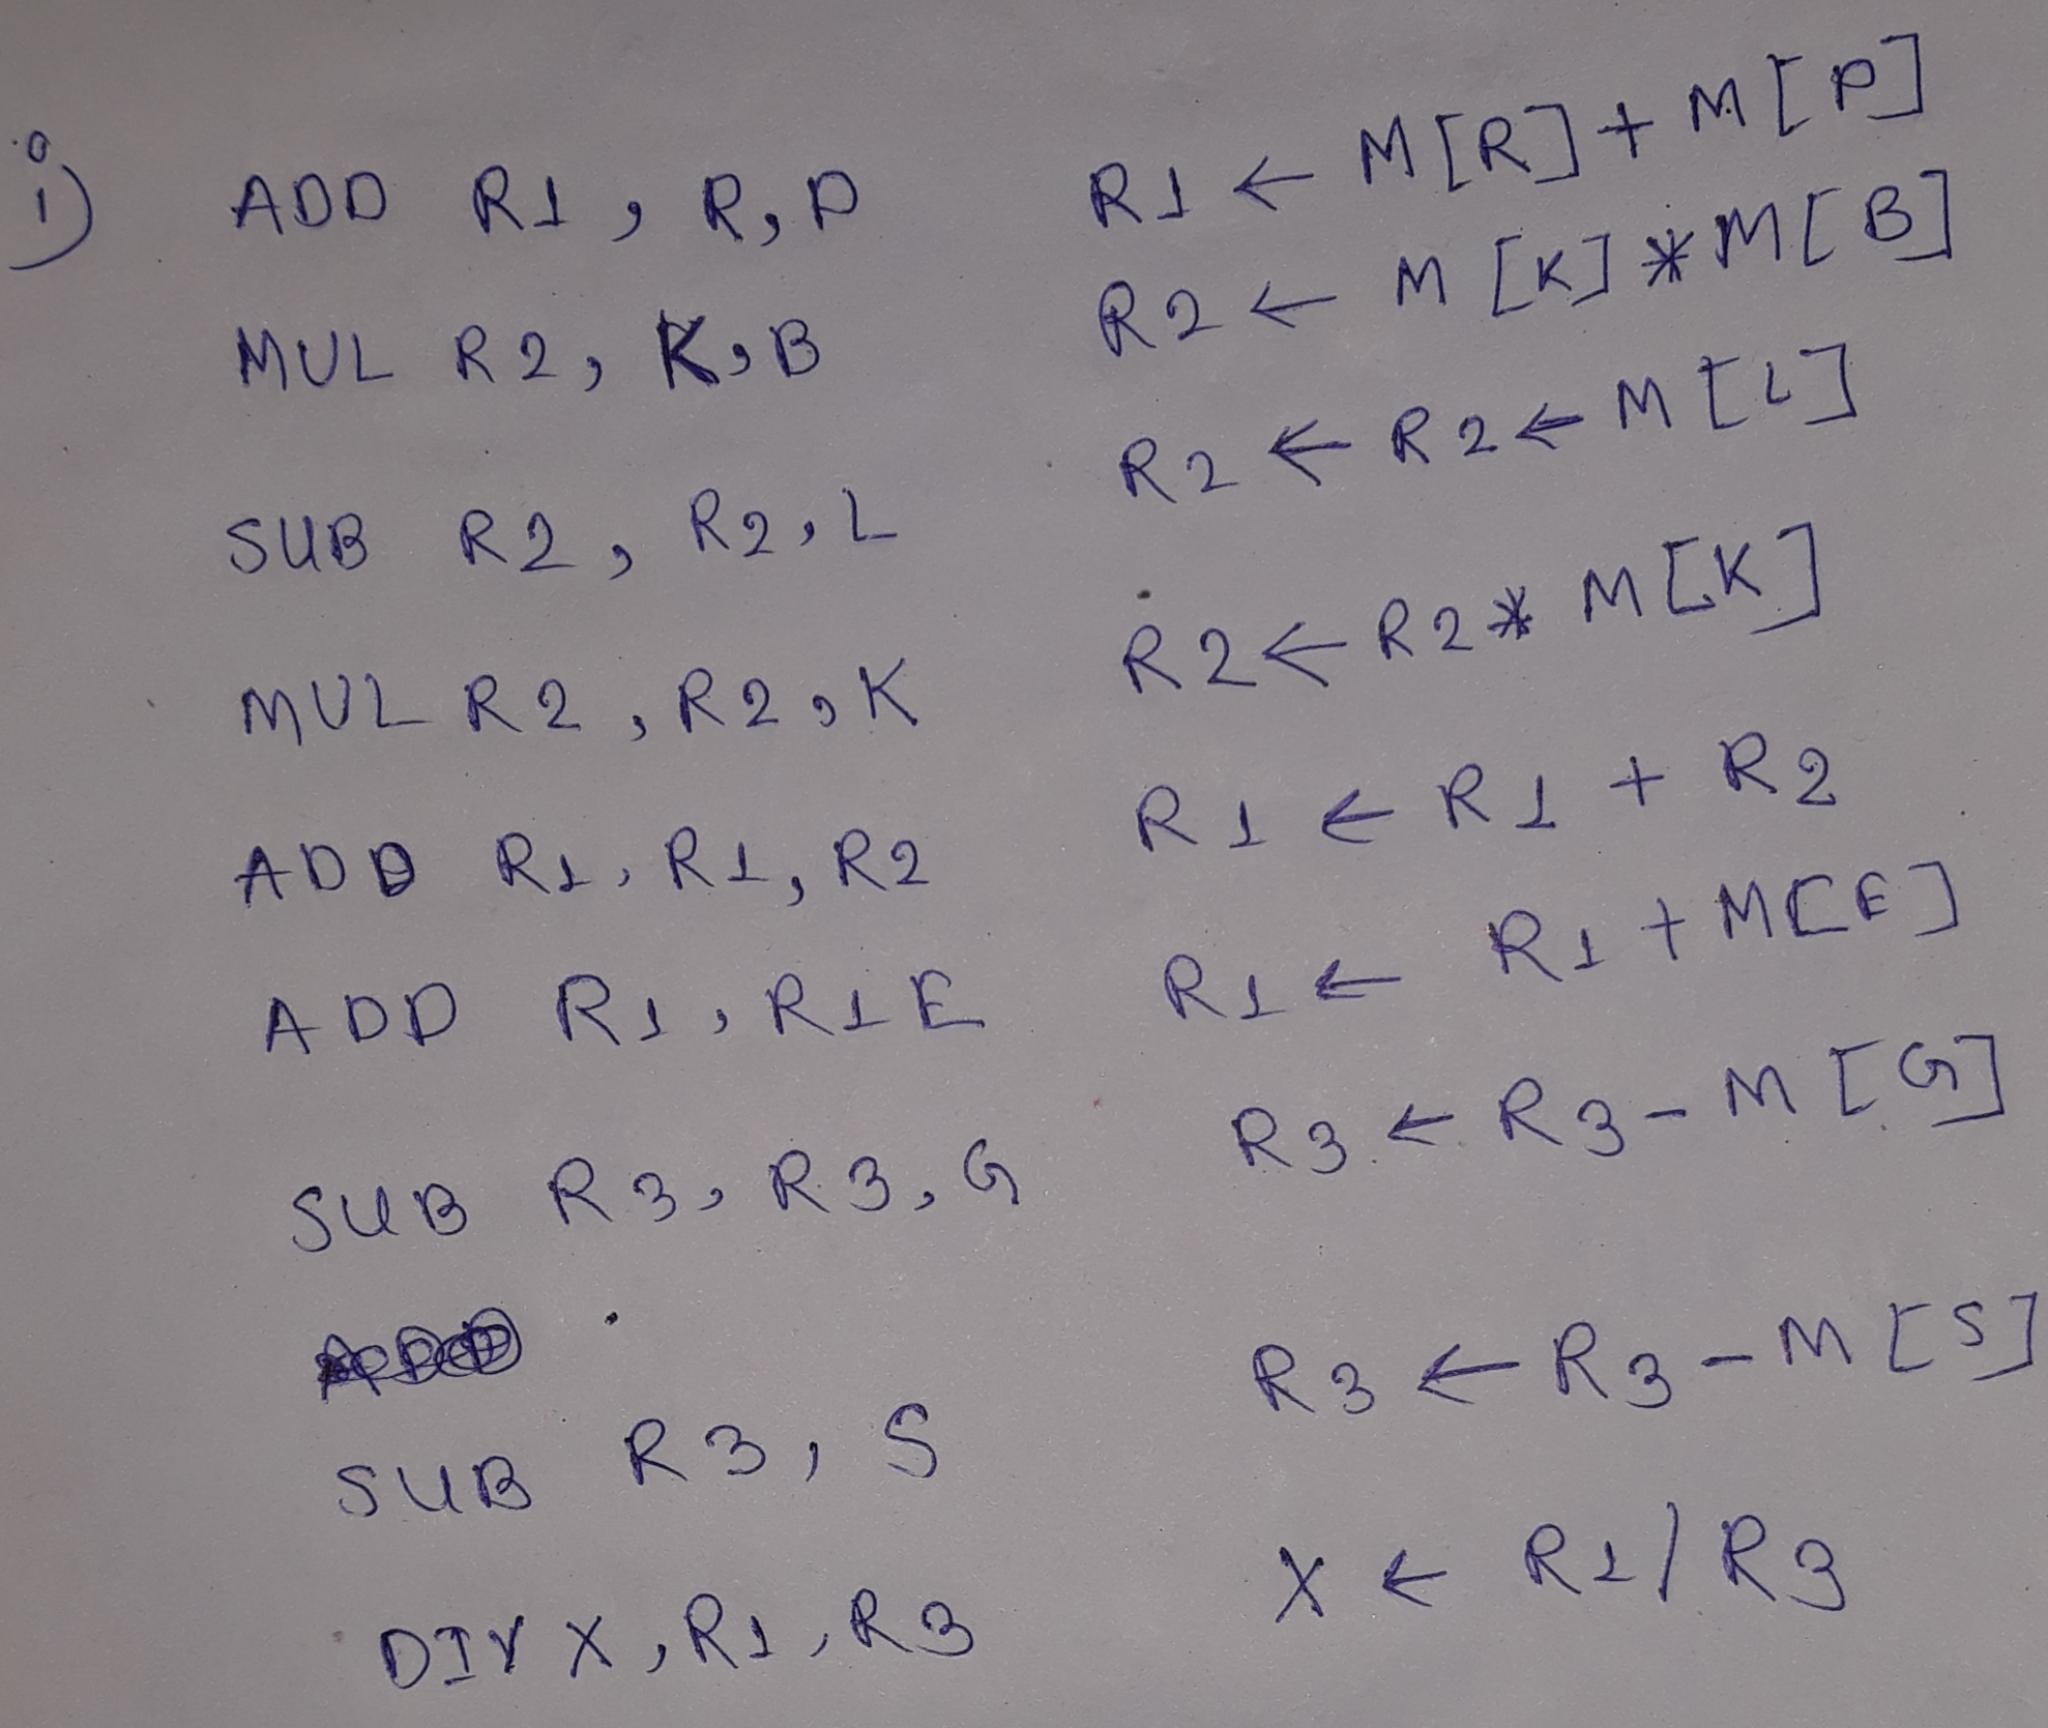 i) ADD R1, R, D R1 ← M[R] + M[P]
MUL R2, K, B R2 ← M[K] * M[B]
SUB R2, R2, L R2 ← R2 ← M[L]
MUL R2, R2, K R2 ← R2 * M[K]
ADD R1, R1, R2 R1 ← R1 + R2
ADD R1, R1 E R1 ← R1 + M[E]
SUB R3, R3, G R3 ← R3 - M[G]
SUB R3, S R3 ← R3 - M[S]
DIV X, R1, R3 X ← R1/R3